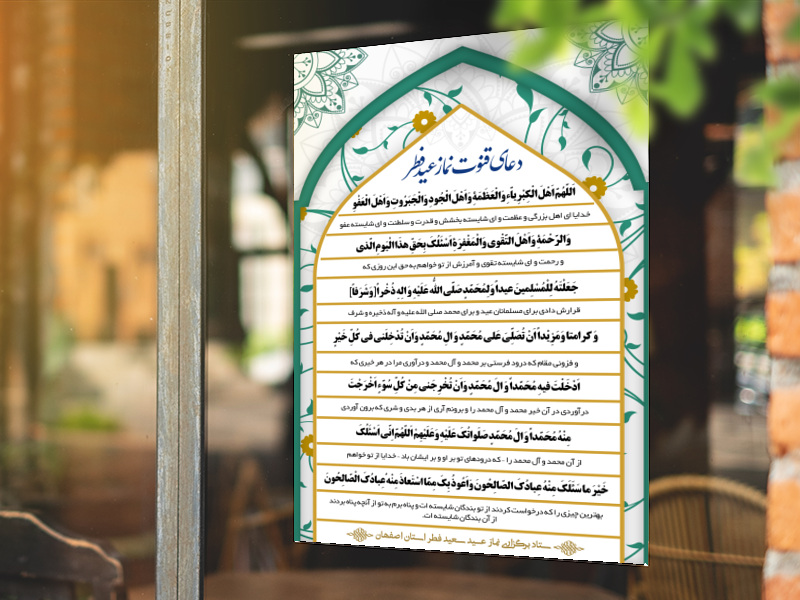 دعای قنوت نماز عید فطر
اَللّهُمَّ اَهْلَ الْکِبْرِیاَّءِ وَالْعَظَمَةِ وَاَهْلَ الْجُودِ وَالْجَبَرُوتِ وَاَهْلَ الْعَفْوِ
خدایا ای اهل بزرگی و عظمت و ای شایسته بخشش و قدرت و سلطنت و ای شایسته عفو
وَالرَّحْمَةِ وَاَهْلَ التَّقْوی وَالْمَغْفِرَةِ اَسْئَلُکَ بِحَقِّ هذَا الْیَومِ الَّذی
و رحمت و ای شایسته تقوی و آمرزش از تو خواهم به حق این روزی که
جَعَلْتَهُ لِلْمُسْلِمینَ عیداً وَلِمُحَمَّدٍ صَلَّی اللّهُ عَلَیْهِ وَ الِهِ ذُخْراً [وَشَرَفاً]
قرارش دادی برای مسلمانان عید و برای محمد صلی الله علیه و آله ذخیره و شرف
وَ کَرامتا وَ مَزِیْداً اَنْ تُصَلِّیَ عَلی مُحَمَّدٍ وَ الِ مُحَمَّدٍ وَاَنْ تُدْخِلَنی فی کُلِّ خَیْرٍ
و فزونی مقام که درود فرستی بر محمد و آل محمد و درآوری مرا در هر خیری که
اَدْخَلْتَ فیهِ مُحَمَّداً وَ الَ مُحَمَّدٍ وَاَنْ تُخْرِجَنی مِنْ کُلِّ سُوَّءٍ اَخْرَجْتَ
درآوردی در آن خیر محمد و آل محمد را و برونم آری از هر بدی و شری که برون آوردی
مِنْهُ مُحَمَّداً وَ الَ مُحَمَّدٍ صَلَواتُکَ عَلَیْهِ وَعَلَیْهِمْ اَللّهُمَّ اِنّی اَسْئَلُکَ
از آن محمد و آل محمد را - که درودهای تو بر او و بر ایشان باد - خدایا از تو خواهم
خَیْرَ ما سَئَلَکَ مِنْهُ عِبادُکَ الصّالِحُونَ وَ اَعُوذُ بِکَ مِمَّا اسْتَعاذَ مِنْهُ عِبادُکَ الْصّالِحُونَ
بهترین چیزی را که درخواست کردند از تو بندگان شایسته ات و پناه برم به تو از آنچه پناه بردند
از آن بندگان شایسته ات.
ستاد برگزاری نماز عید سعید فطر استان اصفهان